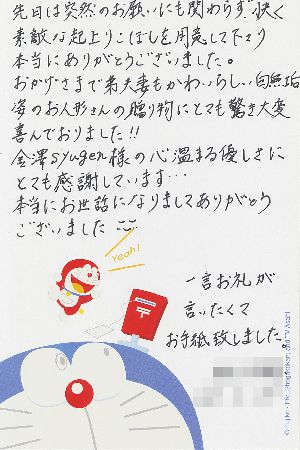 先日は突然のお願いにも関わらず、快く
素敵な起上りこぼしを用意して下さり
本当にありがとうございました。
おかげさまで弟夫妻もかわいらしい白無垢
姿のお人形さんの贈り物にとても驚き大変
喜んでおりました!!
金澤syugen様の心温まる優しさに
とても感謝しています…
本当にお世話になりましてありがとう
ございました
Yeah!
〒
一言お礼が
言いたくて
お手紙致しました。
©Fujiko-Pro, Shogakukan, and TV Asahi